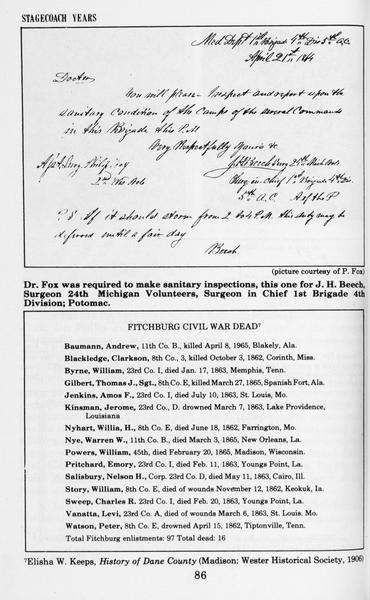 STAGECOACH YEARS
Med Dept 1st Brigade 4th Div 5th A.C.
April 21st 1864
Doctor
You will please inspect and report upon the
sanitary Condition of the Camps of the several Commands
in this Brigade this P.M
Very Respectfully Yours &c
J H Beech Surg 24th Mich Vols
Asst. Surg. Philip Fox
Surg-in-Chief 1st Brigade 4th Div.
2nd Wis Vols
5th A.C. A of the P
P.S. If it should storm from 2 to 4 P.M. this duty may be
deferred until a fair day
Beech
(picture courtesy of P. Fox)
Dr. Fox was required to make sanitary inspections, this one for J. H. Beech,
Surgeon 24th Michigan Volunteers, Surgeon in Chief 1st Brigade 4th
Division; Potomac.
FITCHBURG CIVIL WAR DEAD⁷
Baumann, Andrew, 11th Co. B., killed April 8, 1965, Blakely, Ala.
Blackledge, Clarkson, 8th Co., 3, killed October 3, 1862, Corinth, Miss.
Byrne, William, 23rd Co. I, died Jan. 17, 1863, Memphis, Tenn.
Gilbert, Thomas J., Sgt., 8th Co. E, killed March 27, 1865, Spanish Fort, Ala.
Jenkins, Amos F., 23rd Co. I, died July 10, 1863, St. Louis, Mo.
Kinsman, Jerome, 23rd Co., D. drowned March 7, 1863, Lake Providence,
Louisiana
Nyhart, Willia, H., 8th Co. E, died June 18, 1862, Farrington, Mo.
Nye, Warren W., 11th Co. B., died March 3, 1865, New Orleans, La.
Powers, William, 45th, died February 20, 1865, Madison, Wisconsin.
Pritchard, Emory, 23rd Co. I, died Feb. 11, 1863, Youngs Point, La.
Salisbury, Nelson H., Corp. 23rd Co. D, died May 11, 1863, Cairo, Ill.
Story, William, 8th Co. E, died of wounds November 12, 1862, Keokuk, Ia.
Sweep, Charles R. 23rd Co. I, died Feb. 20, 1863, Youngs Point, La.
Vanatta, Levi, 23rd Co. A, died of wounds March 6, 1863, St. Louis. Mo.
Watson, Peter, 8th Co. E, drowned April 15, 1862, Tiptonville, Tenn.
Total Fitchburg enlistments: 97 Total dead: 16
⁷Elisha W. Keeps, History of Dane County (Madison: Wester Historical Society, 1906)
86